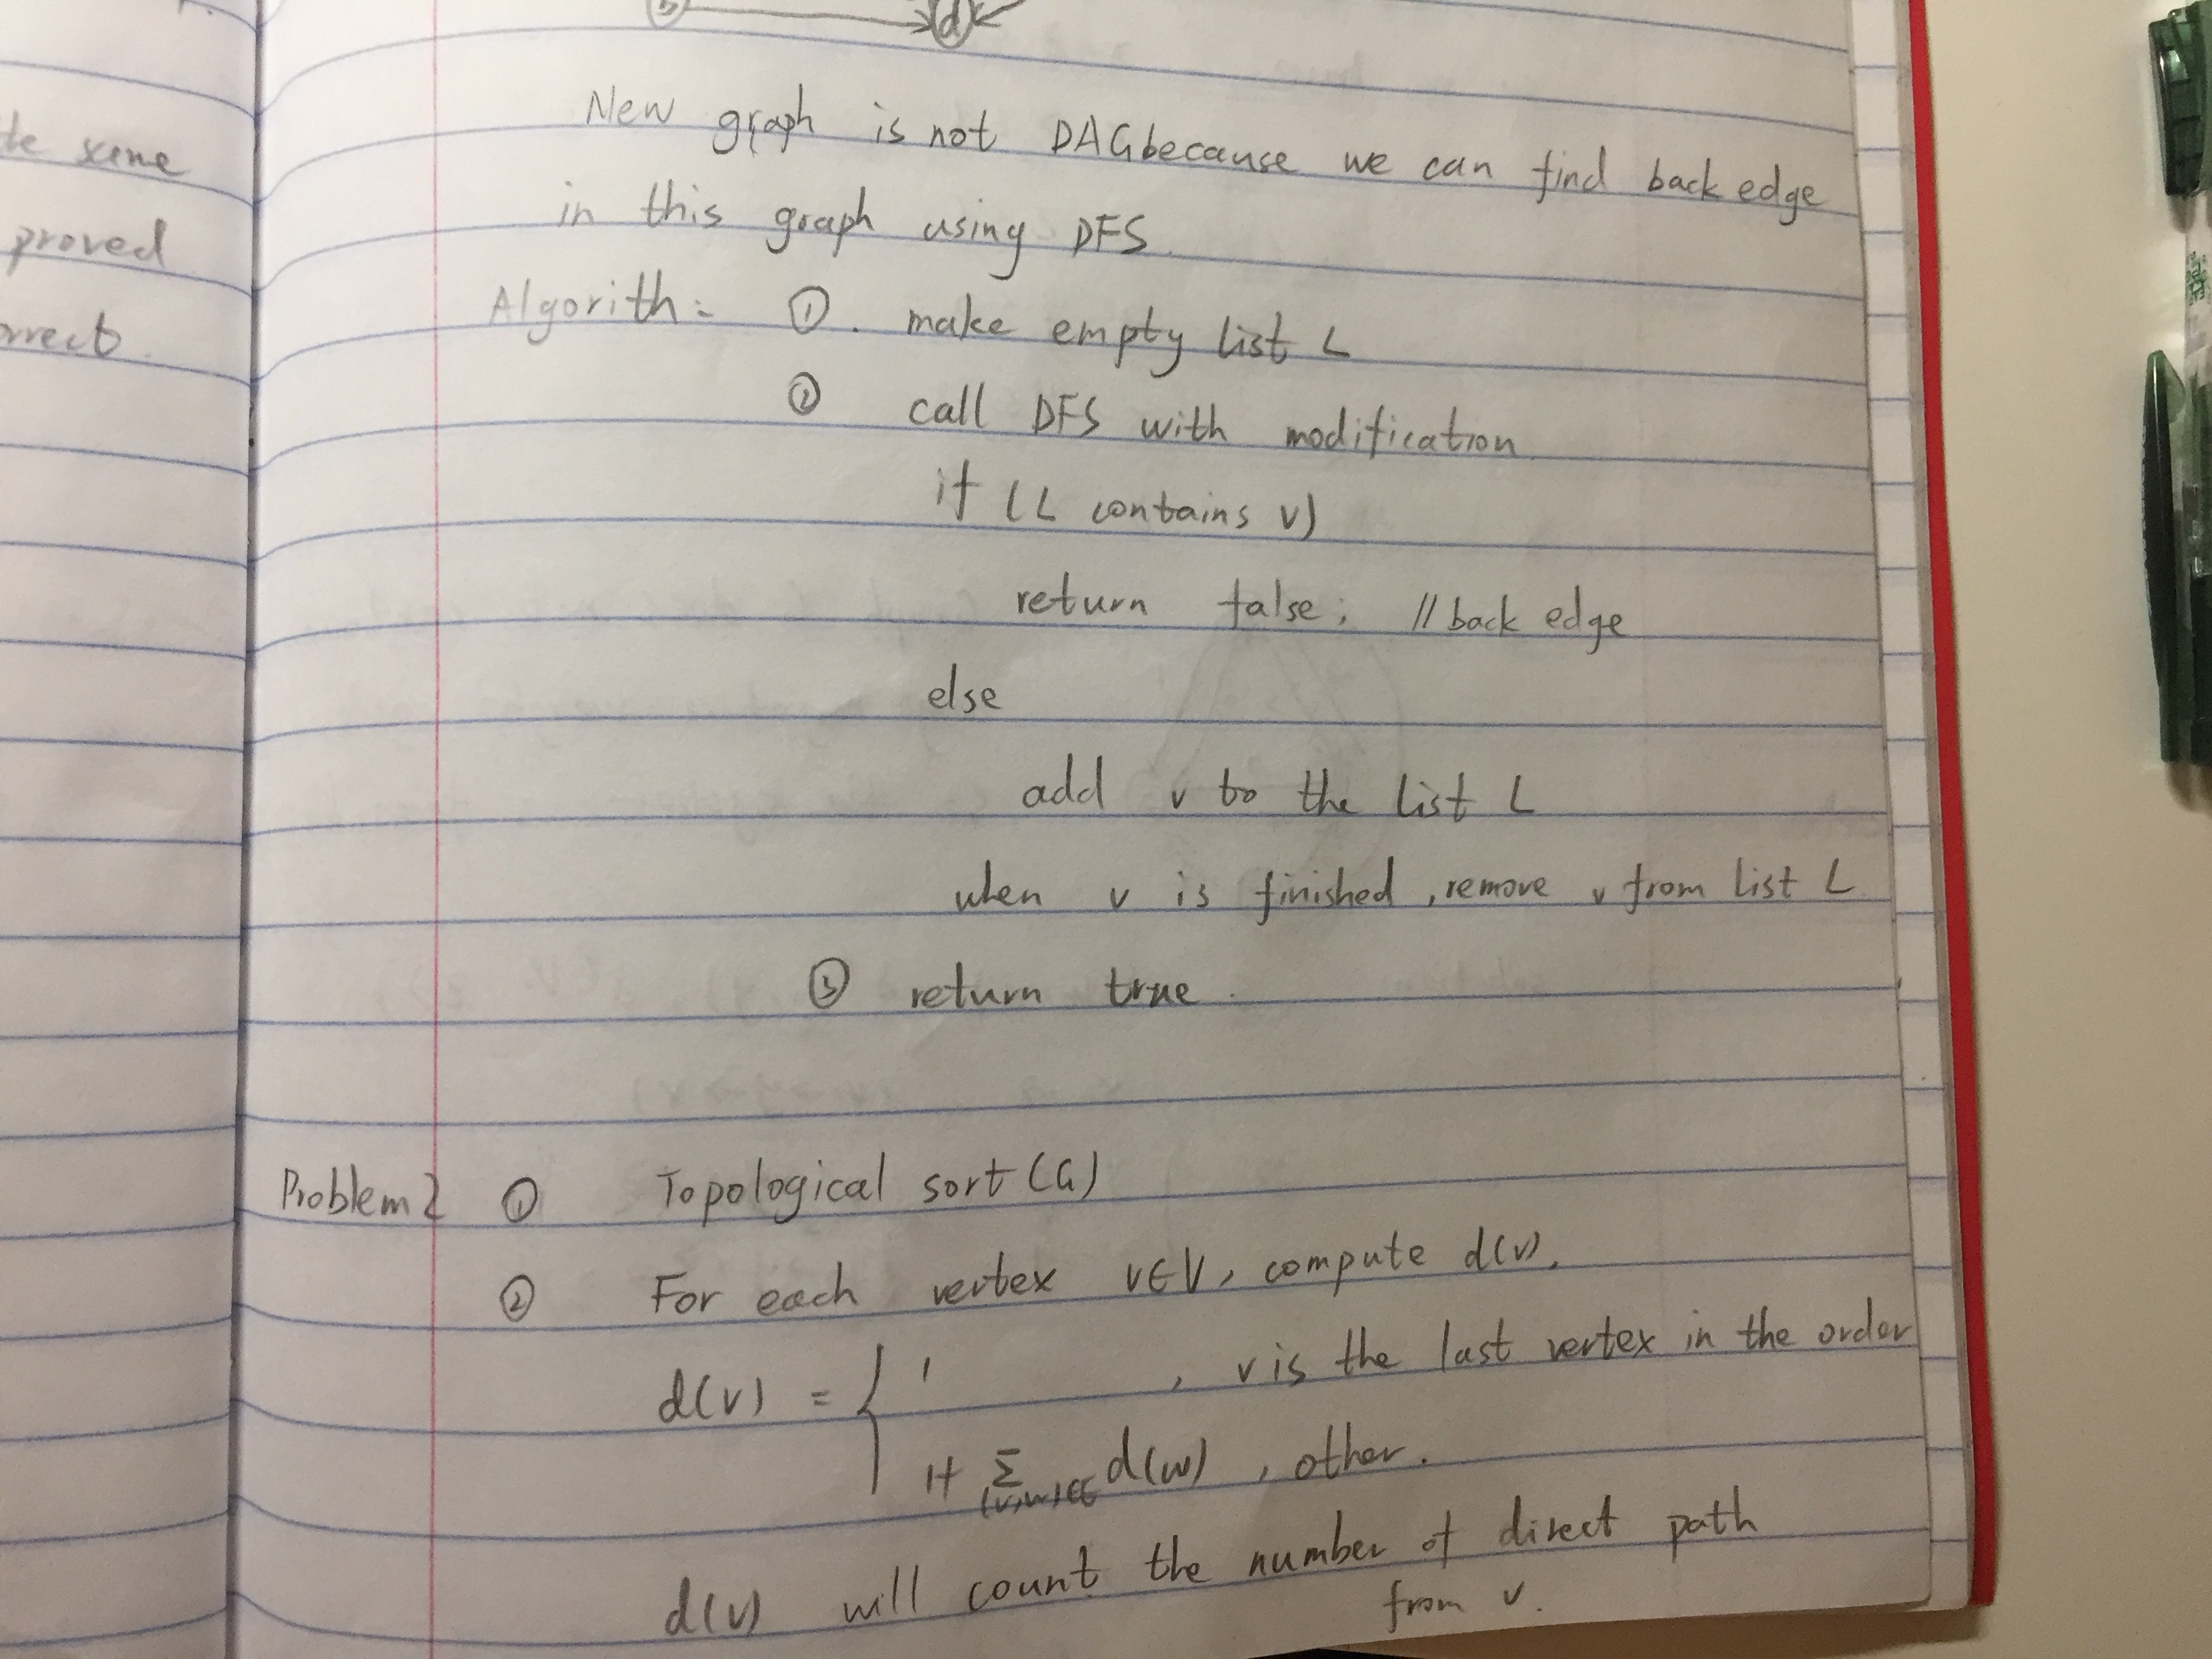 b d
te same
proved
orrect.
New graph is not DAG because we can find back edge
in this graph using DFS.
Algorith: ①. make empty list L
② call DFS with modification
if (L contains v)
return false; // back edge
else
add v to the list L
when v is finished, remove v from list L
③ return true.
Problem 2 ① Topological sort (G)
② For each vertex v∈V, compute d(v).
d(v) = { 1 , v is the last vertex in the order
1+ Σ(v,w)∈E d(w) , other.
d(v) will count the number of direct path
from v.